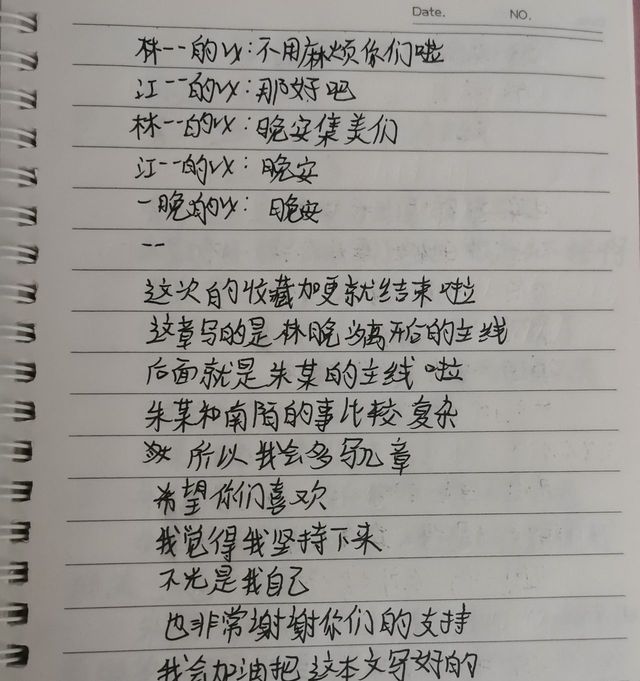 Date.
NO.
林一的vx:不用麻烦你们啦
江一的vx:那好吧
林一的vx:晚安集美们
江一的vx:晚安
一晚的vx:晚安
--
这次的收藏加更就结束啦
这章写的是林晚汐离开后的主线
后面就是朱某的主线啦
朱某和南陌的事比较复杂
所以我会多写几章
希望你们喜欢
我觉得我坚持下来
不光是我自己
也非常谢谢你们的支持
我会加油把这本文写好的